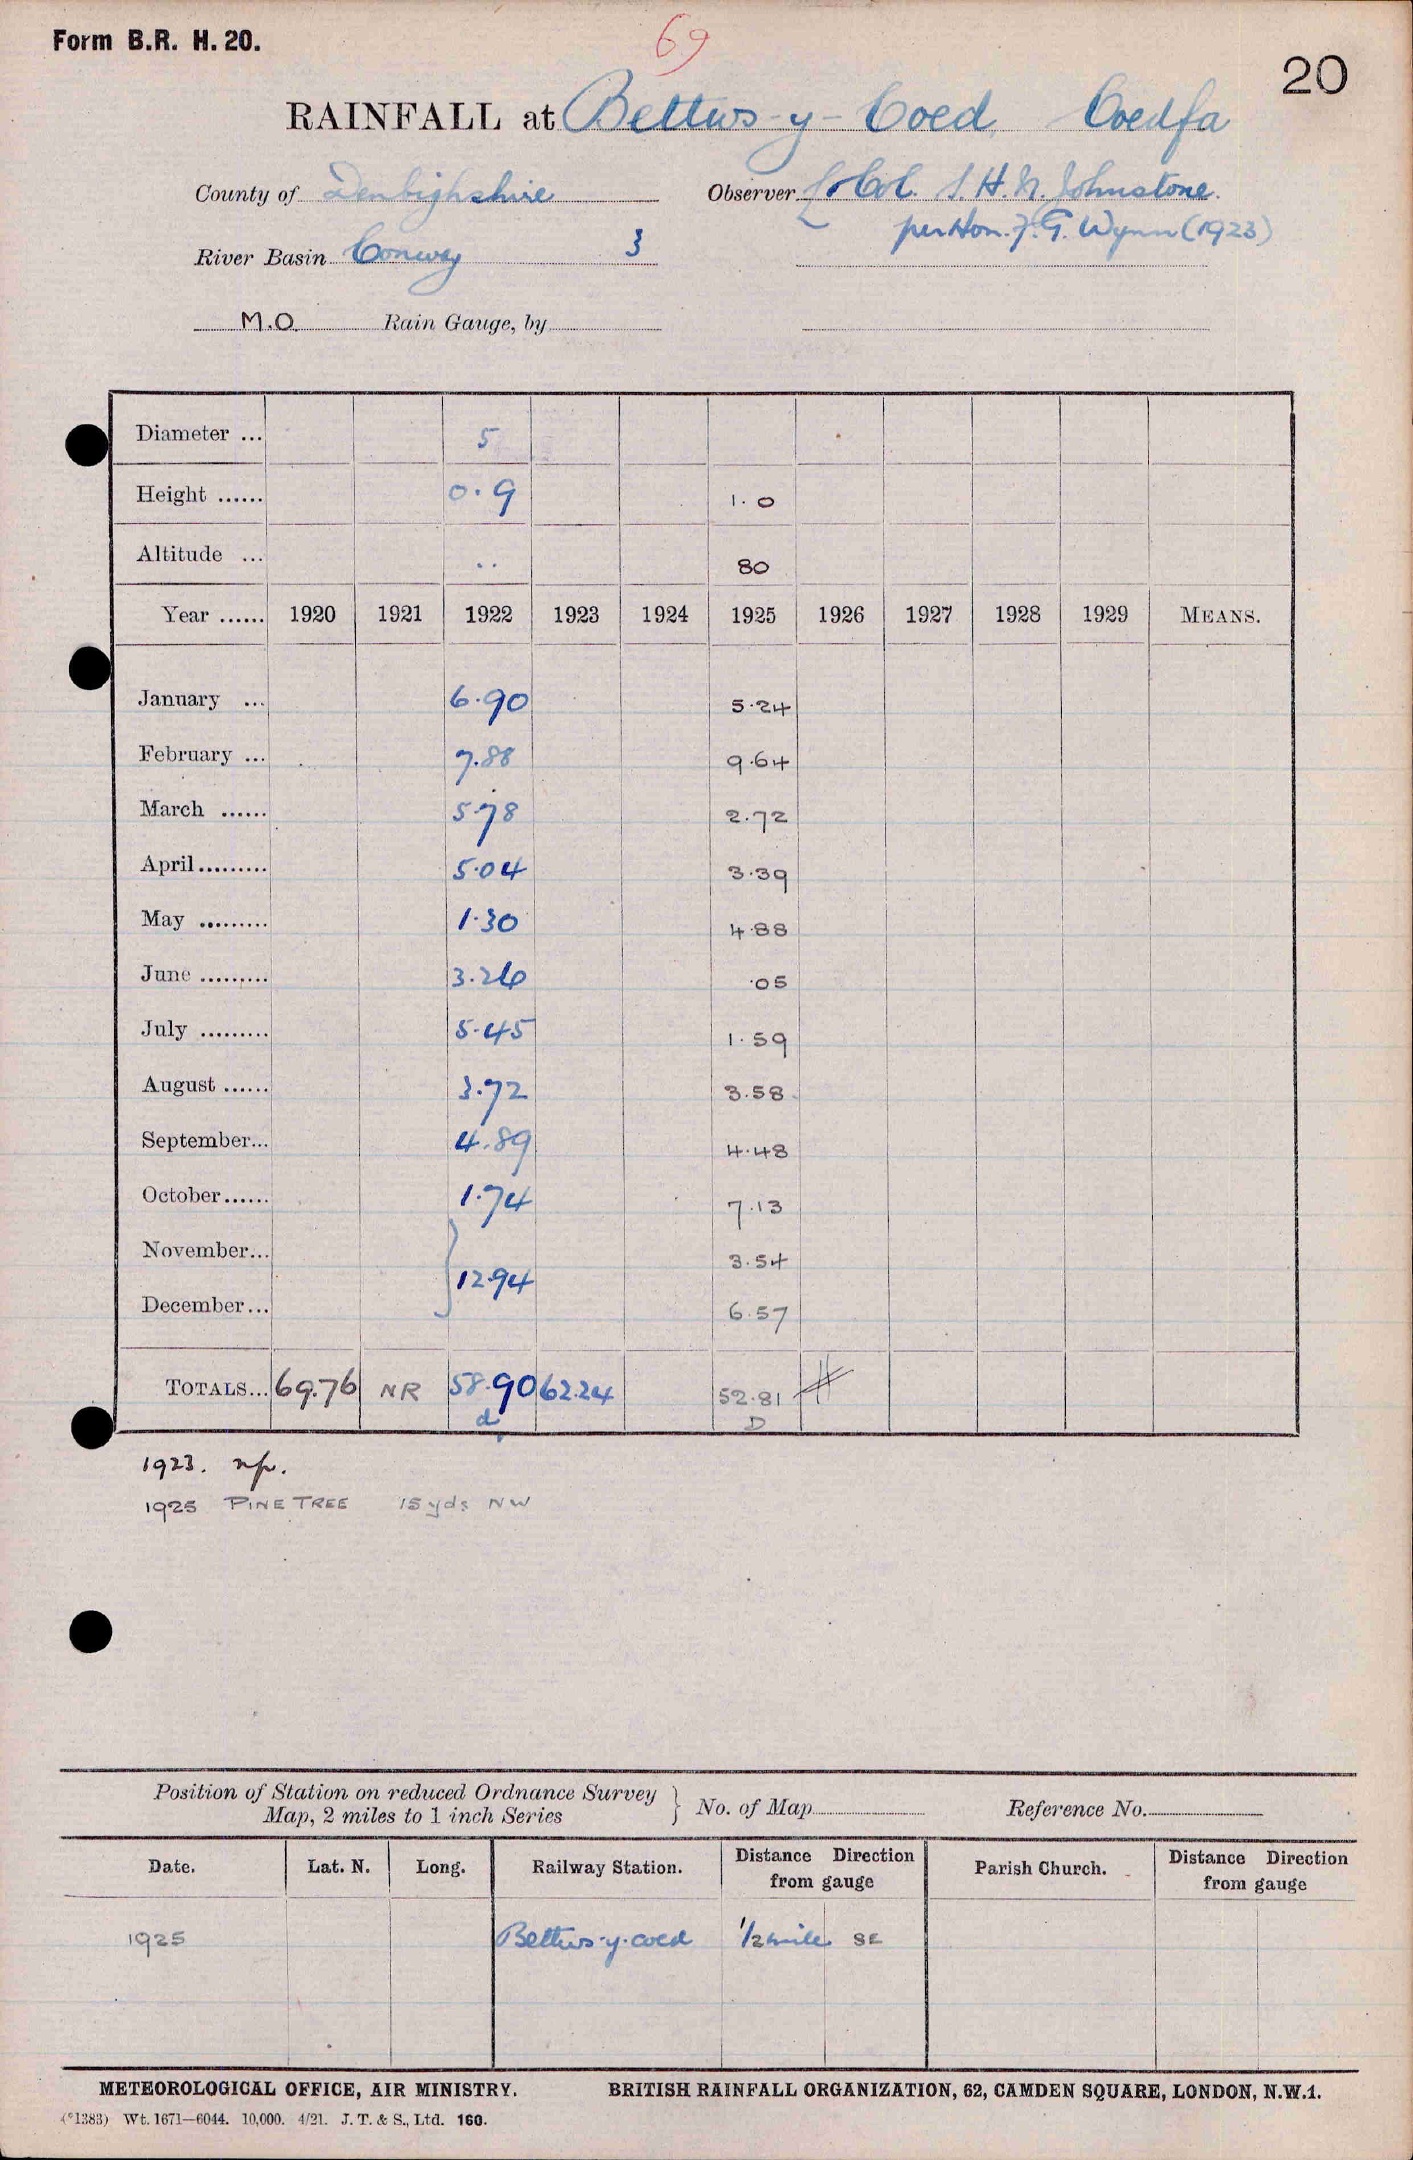 Form B.R. H. 20.
69
20
RAINFALL at Bettws-y-Coed. Coedfa
County of Denbighshire
Observer Lt Col. S. H. M. Johnstone.
per Hon. F. G. Wynn (1923)
River Basin Conway 3
M.O. Rain Gauge, by
Diameter ... 5
Height ...... 0.9 1.0
Altitude ... .. 80
Year ...... 1920 1921 1922 1923 1924 1925 1926 1927 1928 1929 MEANS.
January ... 6.90 5.24
February ... 7.88 9.64
March ...... 5.78 2.72
April......... 5.04 3.39
May ......... 1.30 4.88
June ......... 3.26 .05
July ......... 5.45 1.59
August ...... 3.72 3.58
September... 4.89 4.48
October...... 1.74 7.13
November... 3.54
12.94
December... 6.57
TOTALS... 69.76 NR 58.90 62.24 52.81 #
d D
1923. np.
1925 PINE TREE 15 yds NW
Position of Station on reduced Ordnance Survey
Map, 2 miles to 1 inch Series } No. of Map Reference No.
Date. Lat. N. Long. Railway Station. Distance Direction from gauge Parish Church. Distance Direction from gauge
1925 Bettws-y-coed 1/2 mile SE
METEOROLOGICAL OFFICE, AIR MINISTRY. BRITISH RAINFALL ORGANIZATION, 62, CAMDEN SQUARE, LONDON, N.W.1.
(*1383) Wt. 1671—6044. 10,000. 4/21. J. T. & S., Ltd. 160.